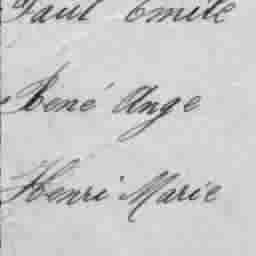 Paul Emile
René Ange
Henri Marie